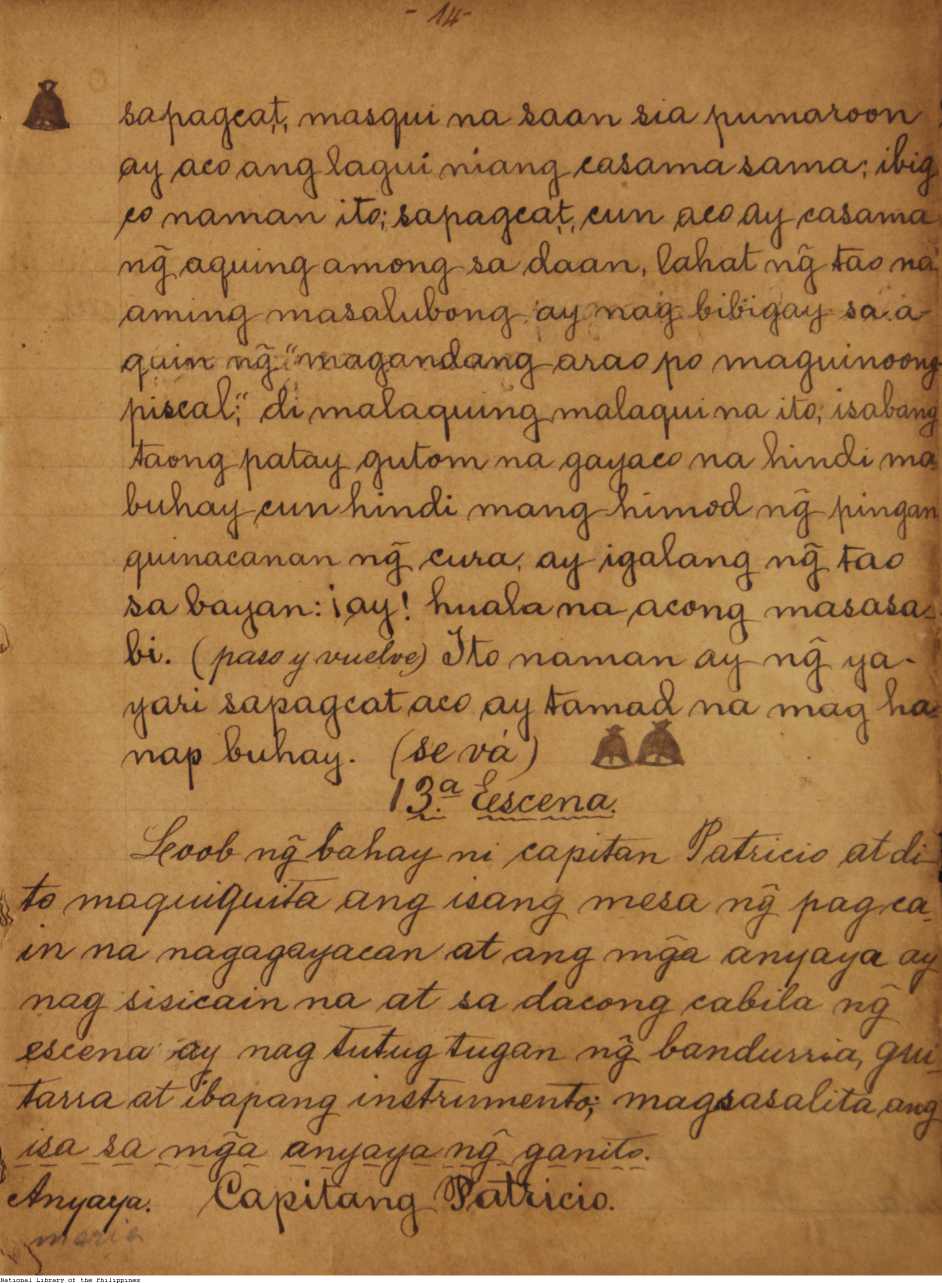 - 14 -
sapagcat, masqui na saan sia pumaroon
ay aco ang lagui niang casama sama; ibig
co naman ito; sapagcat, cun aco ay casama
ng̃ aquing among sa daan, lahat ng̃ tao na
aming masalubong ay nag bibigay sa a-
quin ng̃ "magandang arao po maguinoong
piscal;" di malaquing malaqui na ito; isabang
taong patay gutom na gayaco na hindi ma-
buhay cun hindi mang himod ng̃ pingan
quinacanan ng̃ cura, ay igalang ng̃ tao
sa bayan: ¡ay! huala na acong masasa-
bi. (paso y vuelve) Ito naman ay ng̃ ya-
yari sapagcat aco ay tamad na mag ha-
nap buhay. (se vá)
13.ª Eescena.
Loob ng̃ bahay ni capitan Patricio at di-
to maquiquita ang isang mesa ng̃ pag ca-
in na nagagayacan at ang mg̃a anyaya ay
nag sisicain na at sa dacong cabila ng̃
escena ay nag tutug tugan ng̃ bandurria, gui-
tarra at ibapang instrumento; magsasalita ang
isa sa mg̃a anyaya ng̃ ganito.
Anyaya. Capitang Patricio.
maria
National Library of the Philippines